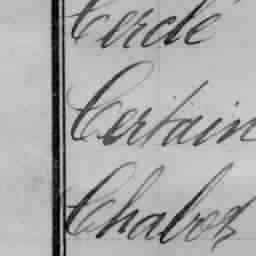 Cerclé
Certain
Chabot